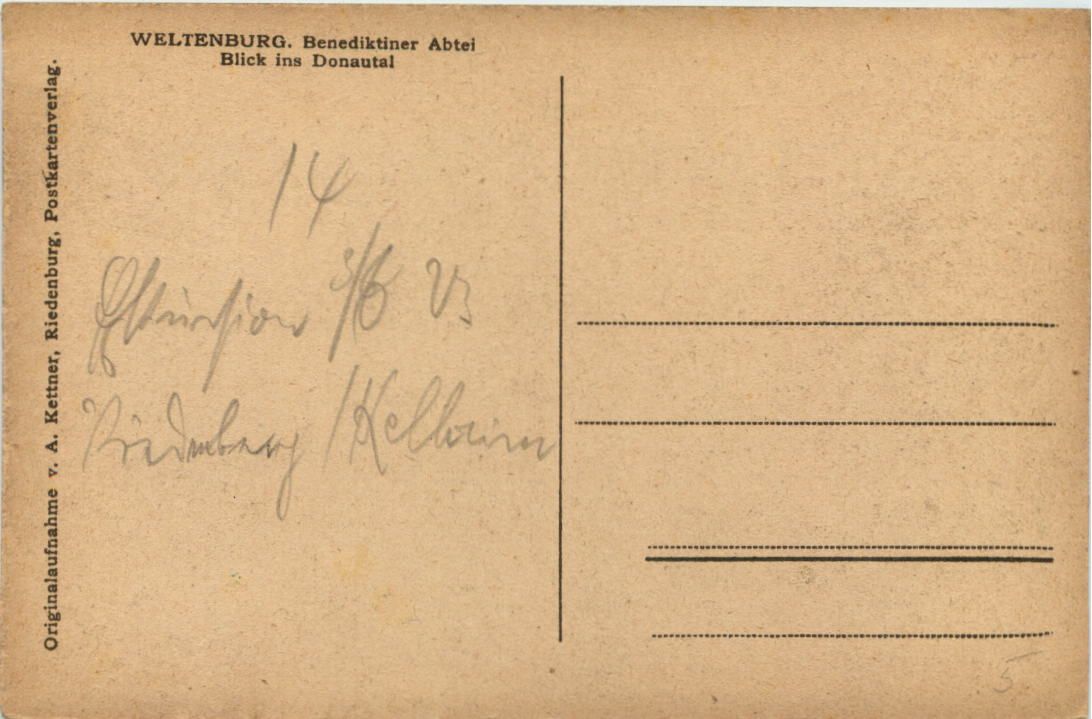 WELTENBURG. Benediktiner Abtei
Blick ins Donautal
Originalaufnahme v. A. Kettner, Riedenburg, Postkartenverlag.
14
Exkursion 5/6 VI
Riedenburg / Kelheim
5